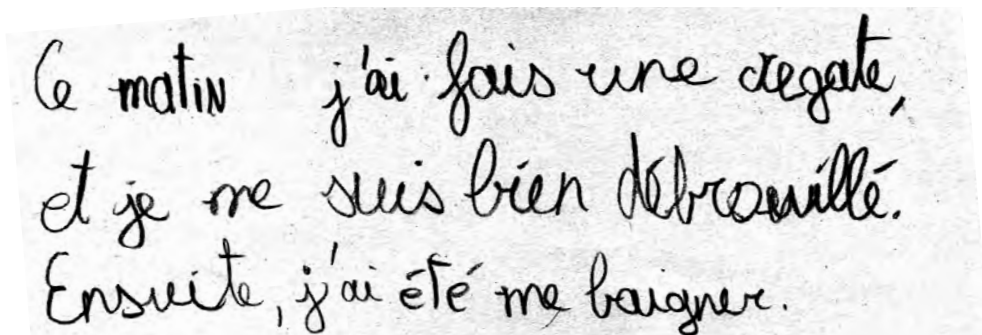 Ce matin j'ai fais une regate,
et je me suis bien débrouillé.
Ensuite, j'ai été me baigner.